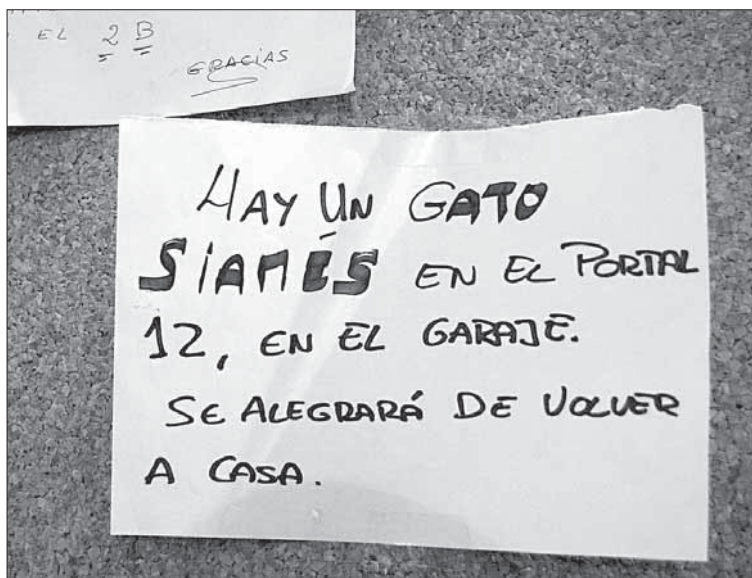 EL 2 B
GRACIAS
HAY UN GATO
SIAMÉS EN EL PORTAL
12, EN EL GARAJE.
SE ALEGRARÁ DE VOLVER
A CASA.